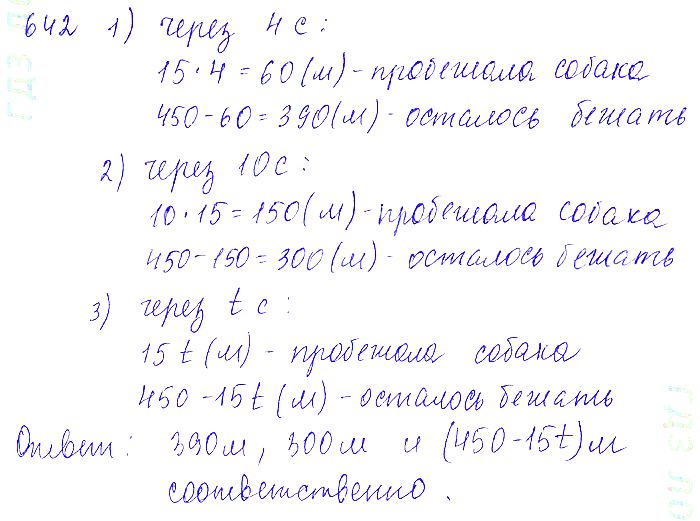 642 1) через 4 с:
15·4=60(м)-пробежала собака
450-60=390(м)-осталось бежать
2) через 10с:
10·15=150(м)-пробежала собака
450-150=300(м)-осталось бежать
3) через t с:
15t(м)- пробежала собака
450-15t(м)-осталось бежать
Ответ: 390м, 300м и (450-15t)м
соответственно.